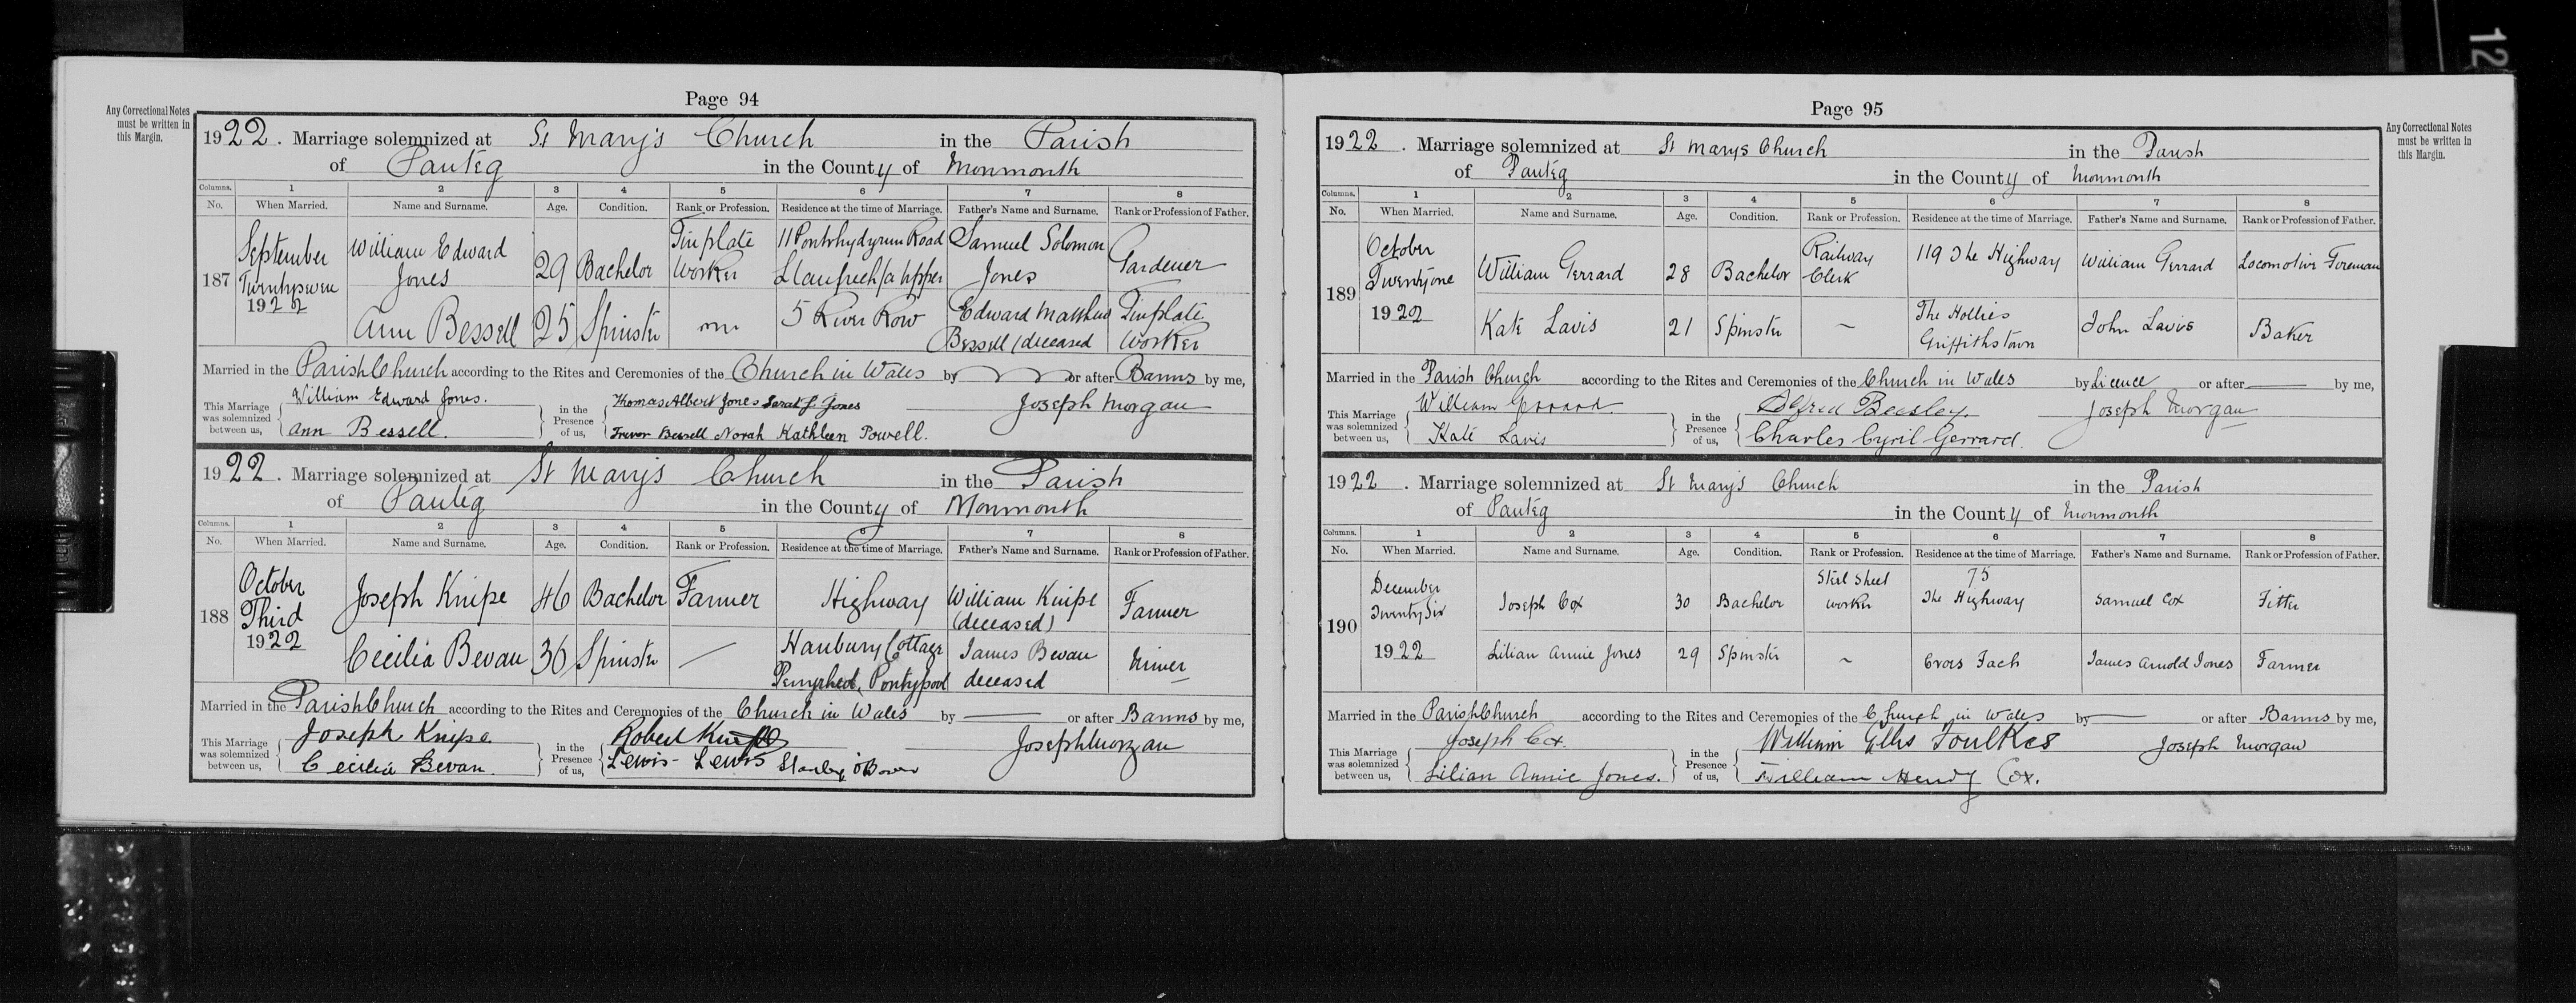 12
Page 94
Any Correctional Notes
must be written in
this Margin.
1922. Marriage solemnized at St Mary's Church in the Parish
of Panteg in the County of Monmouth
Columns. 1 2 3 4 5 6 7 8
No. When Married. Name and Surname. Age. Condition. Rank or Profession. Residence at the time of Marriage. Father's Name and Surname. Rank or Profession of Father.
187
September
Twentyseven
1922
William Edward
Jones
29
Bachelor
Tinplate
Worker
11 Pontrhydyrun Road
Llanfrechfa Upper
Samuel Solomon
Jones
Gardener
Ann Bessell
25
Spinster
5 River Row
Edward Matthew
Bessell (deceased
Tinplate
Worker
Married in the Parish Church according to the Rites and Ceremonies of the Church in Wales by or after Banns by me,
This Marriage
was solemnized
between us,
William Edward Jones.
Ann Bessell.
in the
Presence
of us,
Thomas Albert Jones Sarah J. Jones
Trevor Bessell Norah Kathleen Powell.
Joseph Morgan
1922. Marriage solemnized at St Mary's Church in the Parish
of Panteg in the County of Monmouth
Columns. 1 2 3 4 5 6 7 8
No. When Married. Name and Surname. Age. Condition. Rank or Profession. Residence at the time of Marriage. Father's Name and Surname. Rank or Profession of Father.
188
October
Third
1922
Joseph Knipe
46
Bachelor
Farmer
Highway
William Knipe
(deceased)
Farmer
Cecilia Bevan
36
Spinster
—
Hanbury Cottage
Penyrheol, Pontypool
James Bevan
deceased
Miner
Married in the Parish Church according to the Rites and Ceremonies of the Church in Wales by — or after Banns by me,
This Marriage
was solemnized
between us,
Joseph Knipe.
Cecilia Bevan.
in the
Presence
of us,
Robert Knipe
Lewis Lewis Stanley
Joseph Morgan
Page 95
Any Correctional Notes
must be written in
this Margin.
1922. Marriage solemnized at St Marys Church in the Parish
of Panteg in the County of Monmouth
Columns. 1 2 3 4 5 6 7 8
No. When Married. Name and Surname. Age. Condition. Rank or Profession. Residence at the time of Marriage. Father's Name and Surname. Rank or Profession of Father.
189
October
Twentyone
1922
William Gerrard
28
Bachelor
Railway
Clerk
119 The Highway
William Gerrard
Locomotive Foreman
Kate Lavis
21
Spinster
—
The Hollies
Griffithstown
John Lavis
Baker
Married in the Parish Church according to the Rites and Ceremonies of the Church in Wales by Licence or after — by me,
This Marriage
was solemnized
between us,
William Gerrard
Kate Lavis
in the
Presence
of us,
Alfred Beesley.
Charles Cyril Gerrard.
Joseph Morgan
1922. Marriage solemnized at St Mary's Church in the Parish
of Panteg in the County of Monmouth
Columns. 1 2 3 4 5 6 7 8
No. When Married. Name and Surname. Age. Condition. Rank or Profession. Residence at the time of Marriage. Father's Name and Surname. Rank or Profession of Father.
190
December
Twentysix
1922
Joseph Cox
30
Bachelor
Steel Sheet
Worker
75
The Highway
Samuel Cox
Fitter
Lilian Annie Jones
29
Spinster
—
Croes Fach
James Arnold Jones
Farmer
Married in the Parish Church according to the Rites and Ceremonies of the Church in Wales by — or after Banns by me,
This Marriage
was solemnized
between us,
Joseph Cox.
Lilian Annie Jones.
in the
Presence
of us,
William Ellis Foulkes
William Henry Cox.
Joseph Morgan